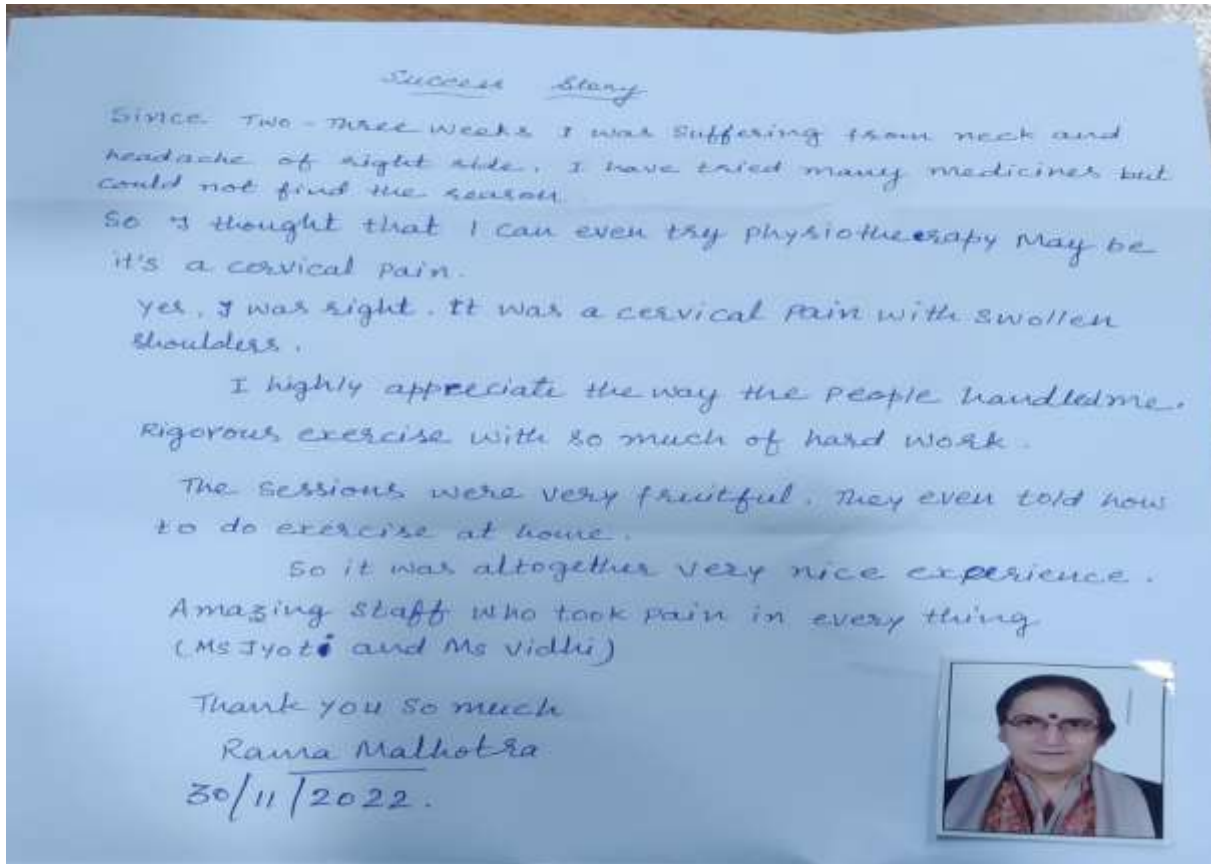 Success Story
Since Two-Three weeks I was suffering from neck and
headache of right side. I have tried many medicines but
could not find the reason.
So I thought that I can even try physiotherapy May be
it's a cervical pain.
yes, I was right. It was a cervical pain with swollen
shoulders.
I highly appreciate the way the people handled me.
Rigorous exercise with so much of hard work.
The sessions were very fruitful. They even told how
to do exercise at home.
So it was altogether very nice experience.
Amazing staff who took pain in every thing
(Ms Jyoti and Ms Vidhi)
Thank you so much
Rama Malhotra
30/11/2022.